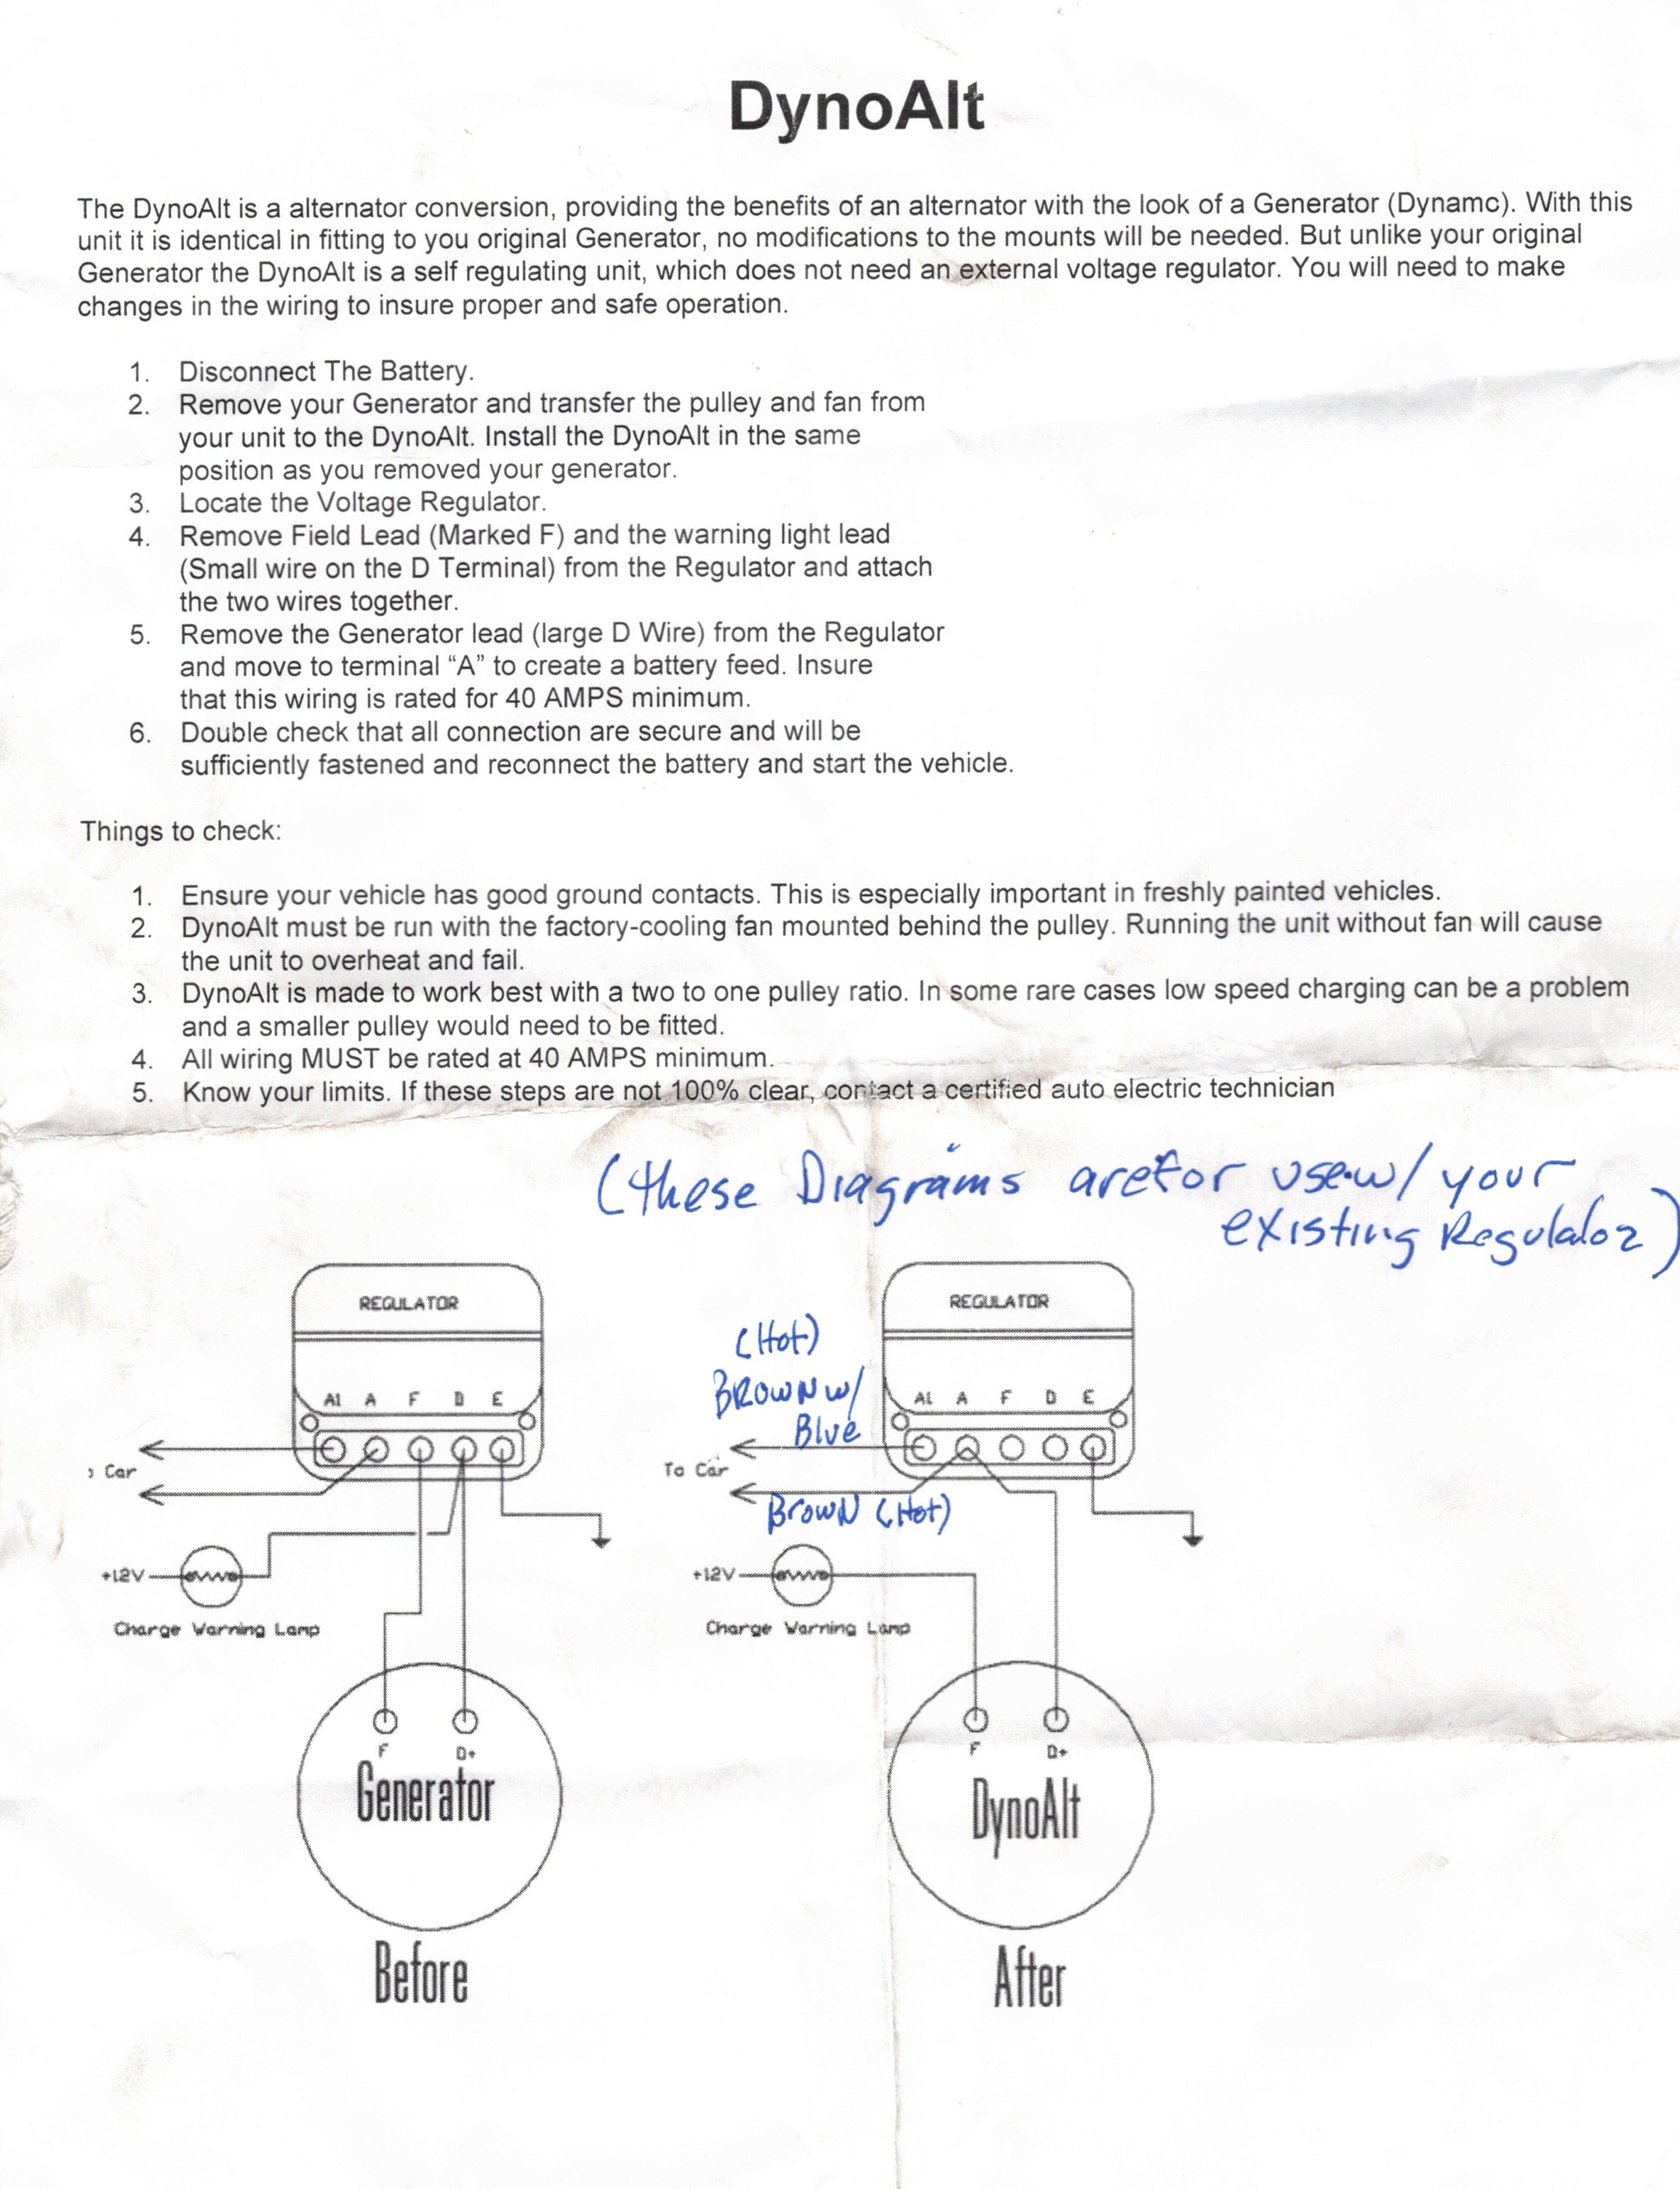 DynoAlt
The DynoAlt is a alternator conversion, providing the benefits of an alternator with the look of a Generator (Dynamc). With this
unit it is identical in fitting to you original Generator, no modifications to the mounts will be needed. But unlike your original
Generator the DynoAlt is a self regulating unit, which does not need an external voltage regulator. You will need to make
changes in the wiring to insure proper and safe operation.
1. Disconnect The Battery.
2. Remove your Generator and transfer the pulley and fan from
your unit to the DynoAlt. Install the DynoAlt in the same
position as you removed your generator.
3. Locate the Voltage Regulator.
4. Remove Field Lead (Marked F) and the warning light lead
(Small wire on the D Terminal) from the Regulator and attach
the two wires together.
5. Remove the Generator lead (large D Wire) from the Regulator
and move to terminal “A” to create a battery feed. Insure
that this wiring is rated for 40 AMPS minimum.
6. Double check that all connection are secure and will be
sufficiently fastened and reconnect the battery and start the vehicle.
Things to check:
1. Ensure your vehicle has good ground contacts. This is especially important in freshly painted vehicles.
2. DynoAlt must be run with the factory-cooling fan mounted behind the pulley. Running the unit without fan will cause
the unit to overheat and fail.
3. DynoAlt is made to work best with a two to one pulley ratio. In some rare cases low speed charging can be a problem
and a smaller pulley would need to be fitted.
4. All wiring MUST be rated at 40 AMPS minimum.
5. Know your limits. If these steps are not 100% clear, contact a certified auto electric technician
(these Diagrams are for use w/ your
existing Regulator)
REGULATOR
A1 A F D E
Car
+12V
Charge Warning Lamp
F D+
Generator
Before
REGULATOR
(Hot)
BROWN w/
Blue
A1 A F D E
To Car
Brown (Hot)
+12V
Charge Warning Lamp
F D+
DynoAlt
After